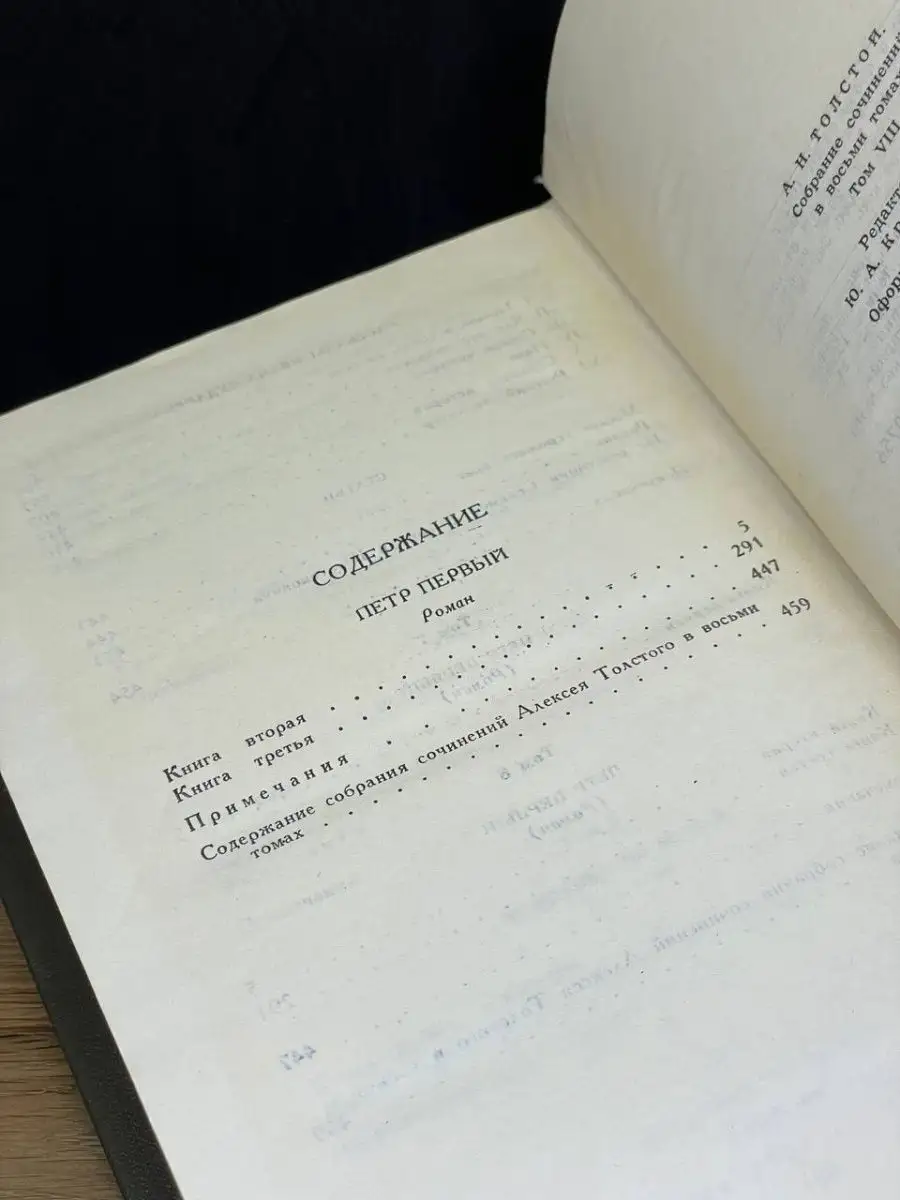 СОДЕРЖАНИЕ
ПЕТР ПЕРВЫЙ
Роман
Книга вторая . . . . . . . . . . . . . . 5
Книга третья . . . . . . . . . . . . . . 291
Примечания . . . . . . . . . . . . . . 447
Содержание собрания сочинений Алексея Толстого в восьми
томах . . . . . . . . . . . . . . . . 459
А. Н. ТОЛСТОЙ.
Собрание сочинений
в восьми томах
Том VIII
Ю. А.